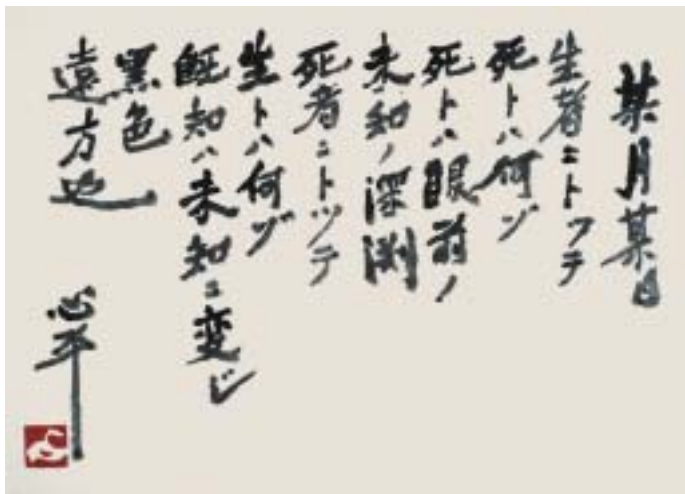 某月某日
生者ニトッテ
死トハ何ゾ
死トハ眼前ノ
未知ノ深渕
死者ニトッテ
生トハ何ゾ
既知ハ未知ニ変ジ
黒色
遠方也
心平